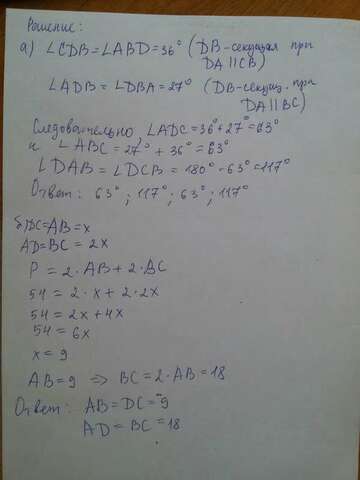 Решение:
а) ∠CDB=∠ABD=36° (DB-секущая при DA||CB)
∠ADB=∠DBA=27° (DB-секущ. при DA||BC)
Следовательно, ∠ADC=36°+27°=63°
и ∠ABC=27°+36°=63°
∠DAB=∠DCB=180°-63°=117°
Ответ: 63°; 117°; 63°; 117°
б) DC=AB=x
AD=BC=2x
P=2·AB+2·BC
54=2·x+2·2x
54=2x+4x
54=6x
x=9
AB=9 => BC=2·AB=18
Ответ: AB=DC=9
AD=BC=18